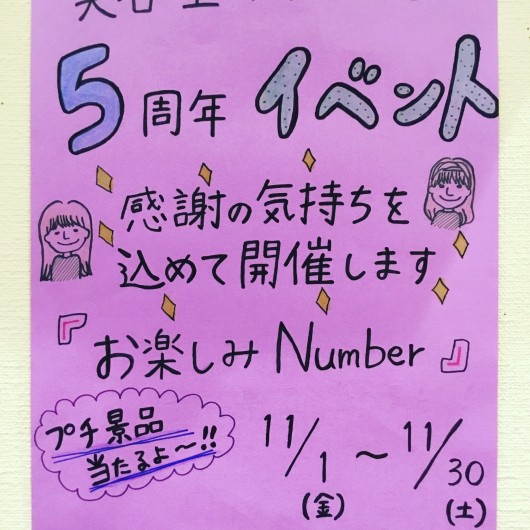 5周年 イベント
感謝の気持ちを
込めて開催します
『お楽しみ Number』
プチ景品
当たるよ〜!!
11/1 〜 11/30
(金) (土)